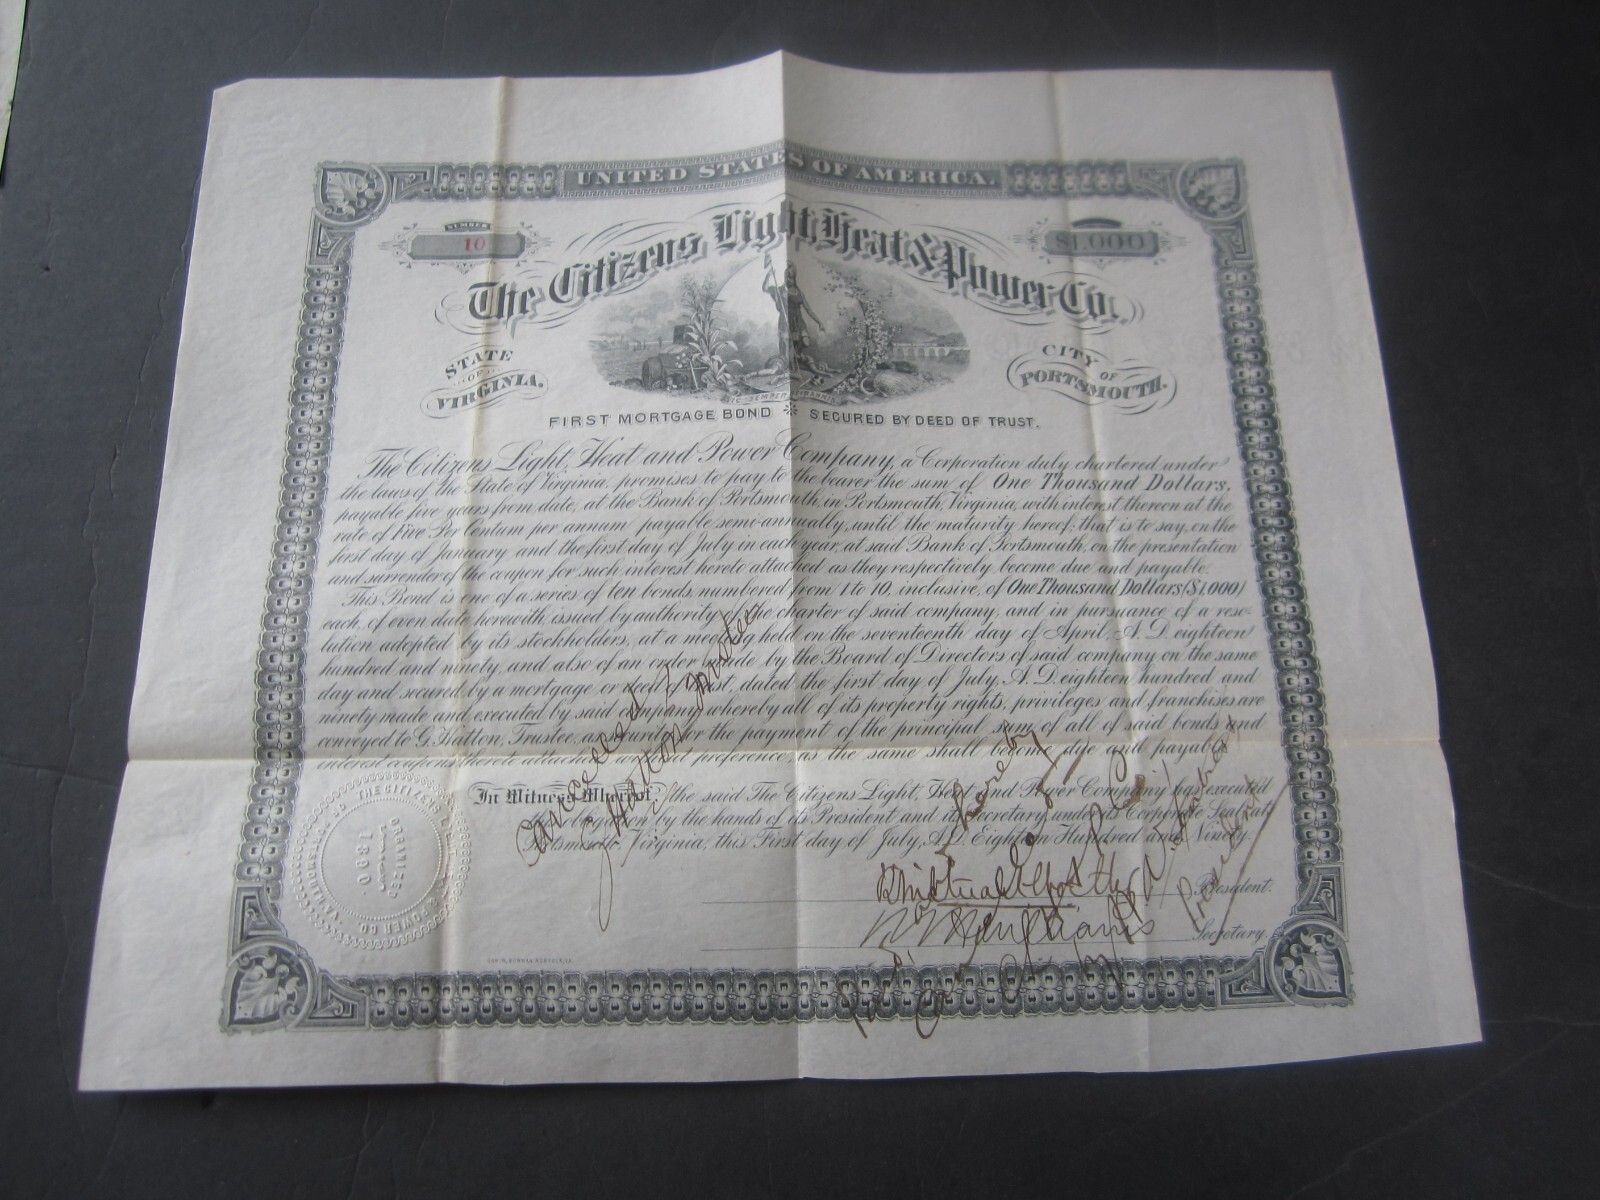 UNITED STATES OF AMERICA.
NUMBER
10
$1,000
The Citizens Light, Heat & Power Co.
STATE
OF
VIRGINIA.
CITY
OF
PORTSMOUTH.
SIC SEMPER TYRANNIS
FIRST MORTGAGE BOND SECURED BY DEED OF TRUST.
The Citizens Light, Heat and Power Company, a Corporation duly chartered under
the laws of the State of Virginia, promises to pay to the bearer the sum of One Thousand Dollars,
payable five years from date, at the Bank of Portsmouth, in Portsmouth, Virginia, with interest thereon at the
rate of Five Per Centum per annum payable semi-annually, until the maturity hereof; that is to say, on the
first day of January, and the first day of July in each year, at said Bank of Portsmouth, on the presentation
and surrender of the coupon for such interest hereto attached as they respectively become due and payable.
This Bond is one of a series of ten bonds, numbered from 1 to 10, inclusive, of One Thousand Dollars ($1,000)
each, of even date herewith, issued by authority of the charter of said company, and in pursuance of a reso-
lution adopted by its stockholders, at a meeting held on the seventeenth day of April, A. D. eighteen
hundred and ninety, and also of an order made by the Board of Directors of said company on the same
day and secured by a mortgage or deed of trust, dated the first day of July, A. D. eighteen hundred and
ninety made and executed by said company whereby all of its property rights, privileges and franchises are
conveyed to G. Hatton, Trustee, as security for the payment of the principal sum of all of said bonds and
interest coupons thereto attached without preference, as the same shall become due and payable.
In Witness Whereof, the said The Citizens Light, Heat and Power Company has executed
this obligation by the hands of its President and its Secretary under its Corporate Seal, at
Portsmouth, Virginia, this First day of July, A. D. Eighteen Hundred and Ninety.
President.
Secretary.
Cancelled
G Hatton Trustee
THE CITIZENS LIGHT HEAT & POWER CO.
ORGANIZED
1890.